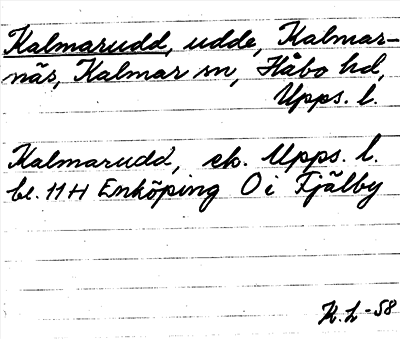 Kalmarudd, udde, Kalmar-
näs, Kalmar sn, Håbo hd,
Upps. l.
Kalmarudd, ek. Upps. l.
bl. 11 H Enköping O i Fjälby
K. L -58